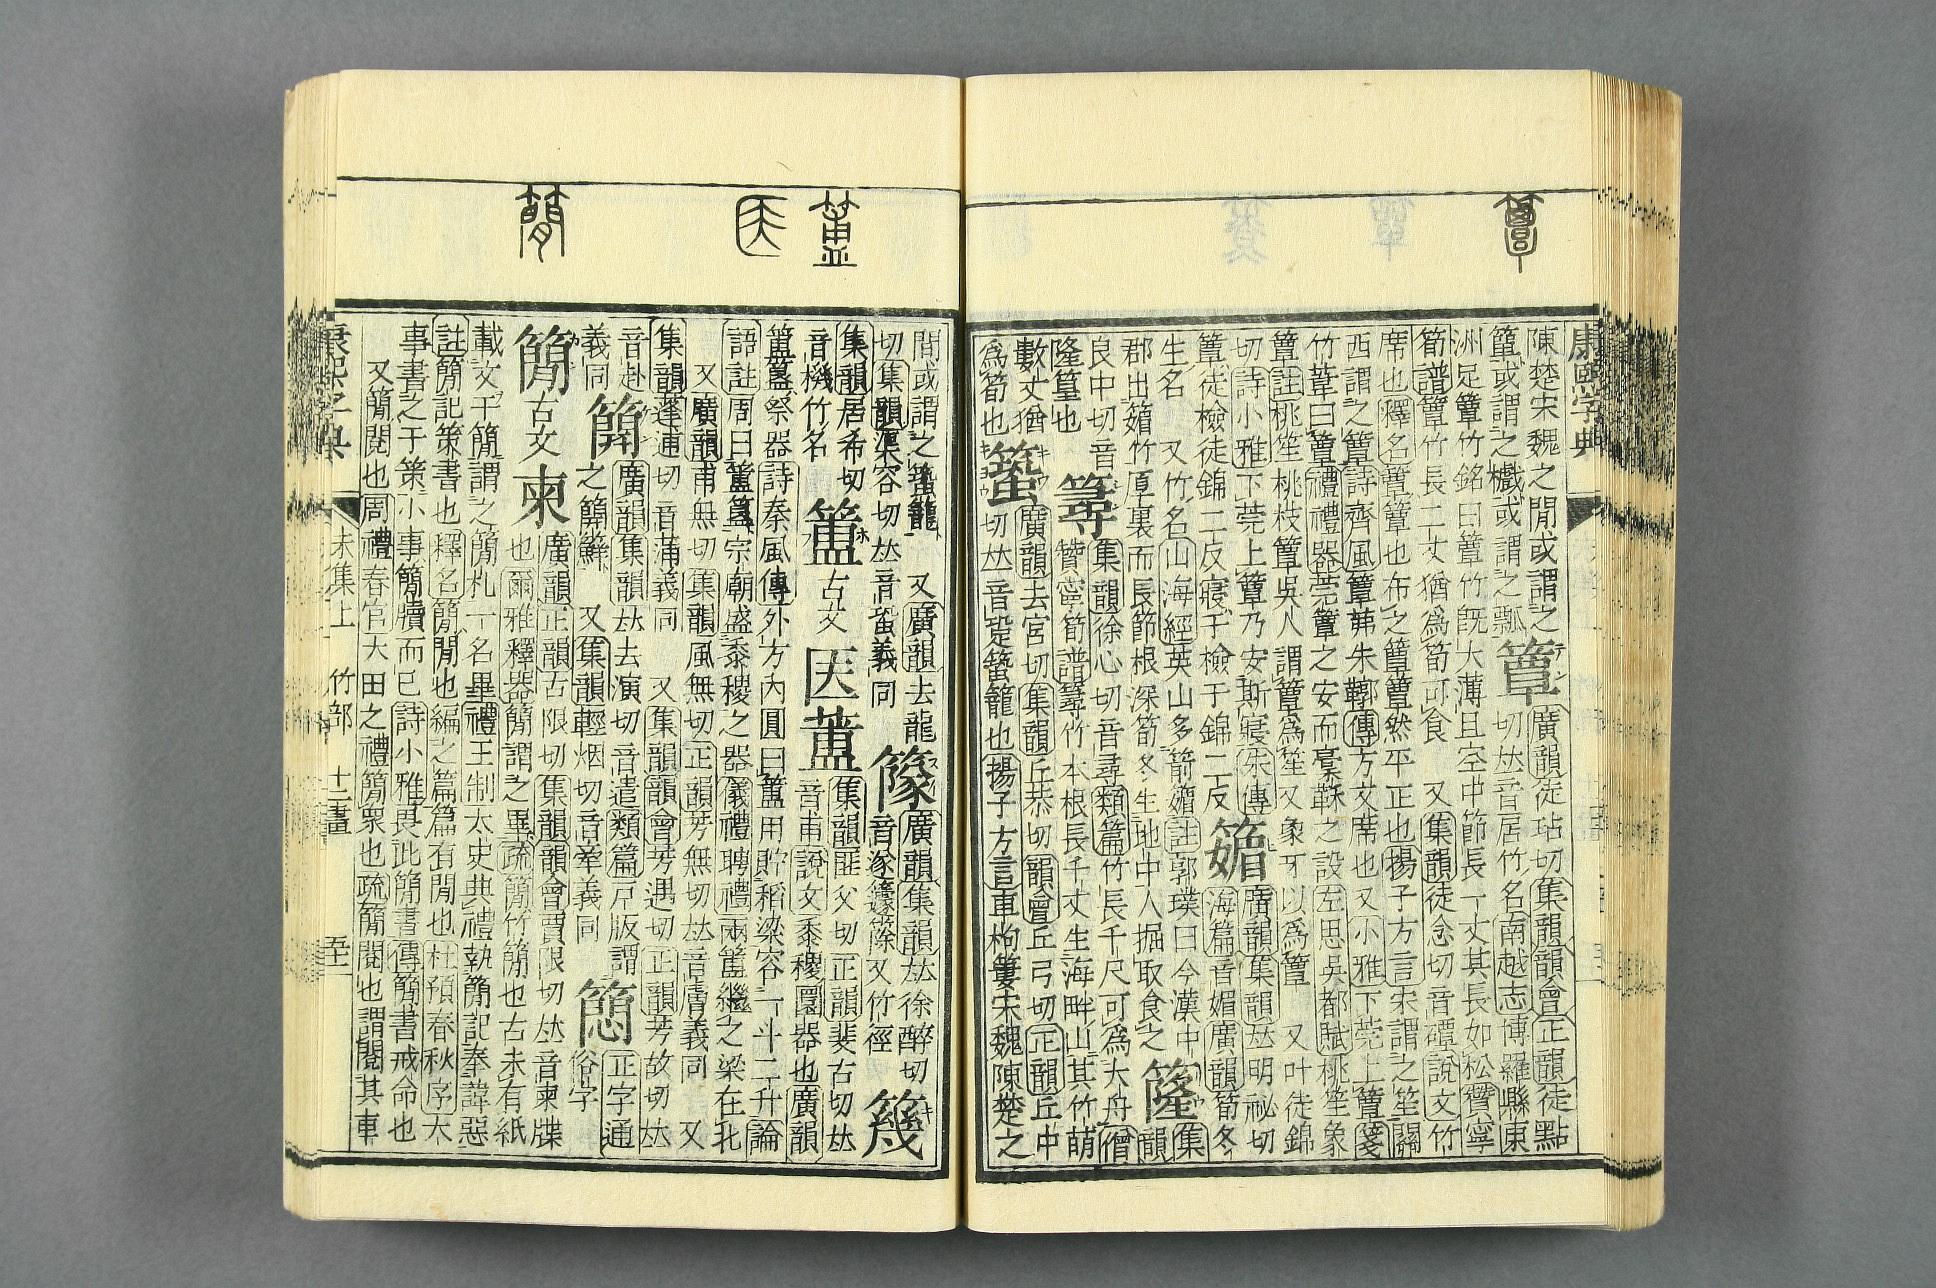 康熙字典
陳楚宋魏之閒或謂之簟廣韻徒玷切集韻韻會正韻徒點
簞或謂之㰕或謂之瓢 切𠀤音居竹名南越志博羅縣東
洲足簟竹銘曰簟竹旣大薄且空中節長一丈其長如松贊寧
筍譜簟竹長二丈猶爲筍可食 又集韻徒念切音磹說文竹
席也釋名簟簟也布之簟簟然平正也揚子方言宋謂之笙關
西謂之簟詩齊風簟茀朱鞹傳方文席也又小雅下莞上簟箋
竹葦曰簟禮禮器莞簟之安而藁鞂之設左思吳都賦桃笙象
簟註桃笙桃枝簟吳人謂簟爲笙又象牙以爲簟 又叶徒錦
切詩小雅下莞上簟乃安斯寢朱傳 廣韻集韻𠀤明祕切
簟徒檢徒錦二反寢于檢于錦二反 䉋 海篇音媚廣韻筍冬
生名 又竹名山海經英山多箭䉋註郭璞曰今漢中 集
郡出䉋竹厚裏而長節根深筍冬生地中人掘取食之 䉌 韻
良中切音 集韻徐心切音尋類篇竹長千尺可爲大舟僧
隆䉌也 贊寧筍譜䉊竹本根長千丈生海畔山其竹萌
數丈猶 廣韻去宮切集韻丘恭切韻會丘弓切正韻丘中
爲筍也 切𠀤音跫 籠也揚子方言車枸簍宋魏陳楚之
間或謂之 籠 又廣韻去龍 廣韻集韻𠀤徐醉切
切集韻渠容切𠀤音蛩義同 音遂籧篨又竹徑
集韻居希切 簠 古文 医 集韻匪父切正韻斐古切𠀤
音機竹名 音甫說文黍稷圜器也廣韻
簠簋祭器詩秦風傳外方內圓曰簠用貯稻粱容一斗二升論
語註周曰簠簋宗廟盛黍稷之器儀禮聘禮兩簠繼之梁在北
又廣韻甫無切集韻風無切正韻芳無切𠀤音膚義同 又
集韻蓬逋切音蒲義同 又集韻韻會芳遇切正韻芳故切𠀤
音赴 廣韻集韻𠀤去演切音遣類篇戸版謂 正字通
義同 之 又集韻輕烟切音牽義同 俗字
簡 古文 柬 廣韻正韻古限切集韻韻會賈限切𠀤音柬牒
也爾雅釋器簡謂之畢疏簡竹簡也古未有紙
載文于簡謂之簡札一名畢禮王制太史典禮執簡記奉諱惡
註簡記策書也釋名簡閒也編之篇篇有閒也杜預春秋序大
事書之于策小事簡牘而已詩小雅畏此簡書傳簡書戒命也
又簡閱也周禮春官大田之禮簡眾也疏簡閱也謂閱其車
康熙字典 未集上 竹部 十二畫